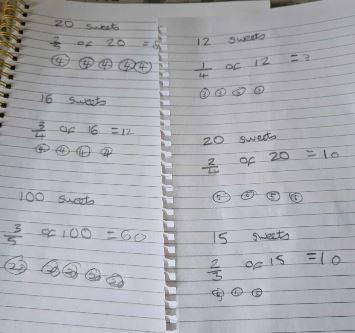 20 sweets
of 20 =
④ ④ ④ ④ ④
16 sweets
3/4 of 16 = 12
④ ④ ④ ④
100 sweets
3/5 of 100 = 60
⑳ ⑳ ⑳ ⑳ ⑳
12 sweets
1/4 of 12 = 3
③ ③ ③ ③
20 sweets
2/4 of 20 = 10
⑤ ⑤ ⑤ ⑤
15 sweets
2/3 of 15 = 10
⑤ ⑤ ⑤